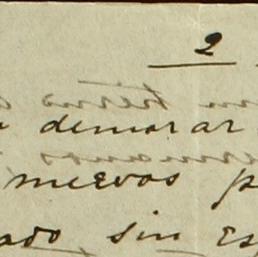 2
demorar
nuevos p
ado sin es